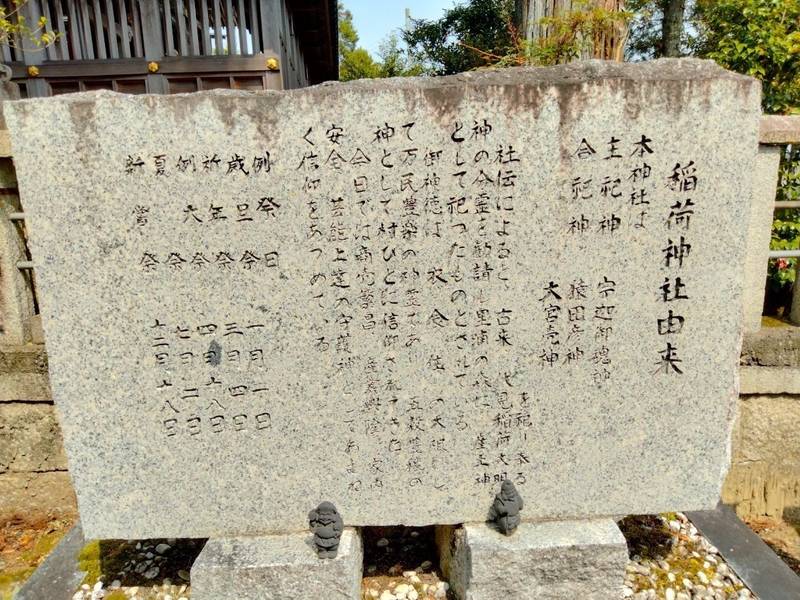 稲荷神社由来
本神社は
主祀神 宇迦御魂神
合祀神 猿田彦神
大宮売神
を祀り奉る
社伝によると、古来、伏見稲荷大明
神の分霊を勧請し里浦の森に産土神
として祀ったものとされている
御神徳は、衣食住の大祖にし
て万民豊楽の神霊であり、五穀豊穣の
神として村びとに信仰されてきた
今日では商売繁昌、産業興隆、家内
安全、芸能上達の守護神としてあまね
く信仰をあつめている
例祭日
歳旦祭 一月一日
祈年祭 三月四日
例大祭 四月十八日
夏祭 七月二日
新嘗祭 十二月十八日